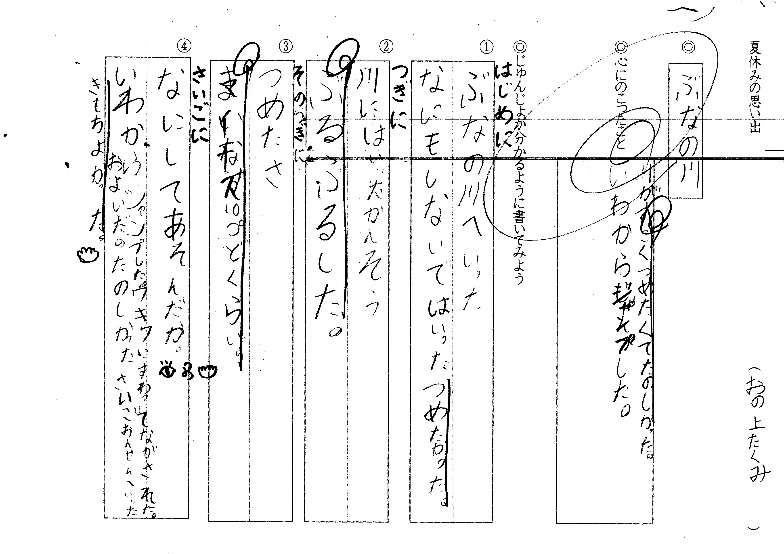 夏休みの思い出
(おの上たくみ)
◎
ぶなの川
◎心にのこったこと
つめたくてたのしかった。
いわから
した。
◎じゅんじょが分かるように書いてみよう
①
はじめに
ぶなの川へいった
なにもしないではいったつめたかった。
②
つぎに
川にはいたかんそう
ぶるぶるした。
③
そのつぎに
つめたさ
まいなす
どくらい。
④
さいごに
なにしてあそんだか。
いわからジャンプしたウキワにまわってながされた。
およいだのたのしかった さいごおんせんへいった
きもちよかった。